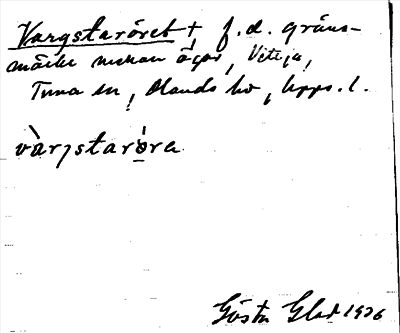 Vargstaröret †, f.d. gräns-
märke mellan ägor, Veteja,
Tuna sn, Olands hd, Upps. l.
vàrgstarø̀ra
Gösta Glad 1926